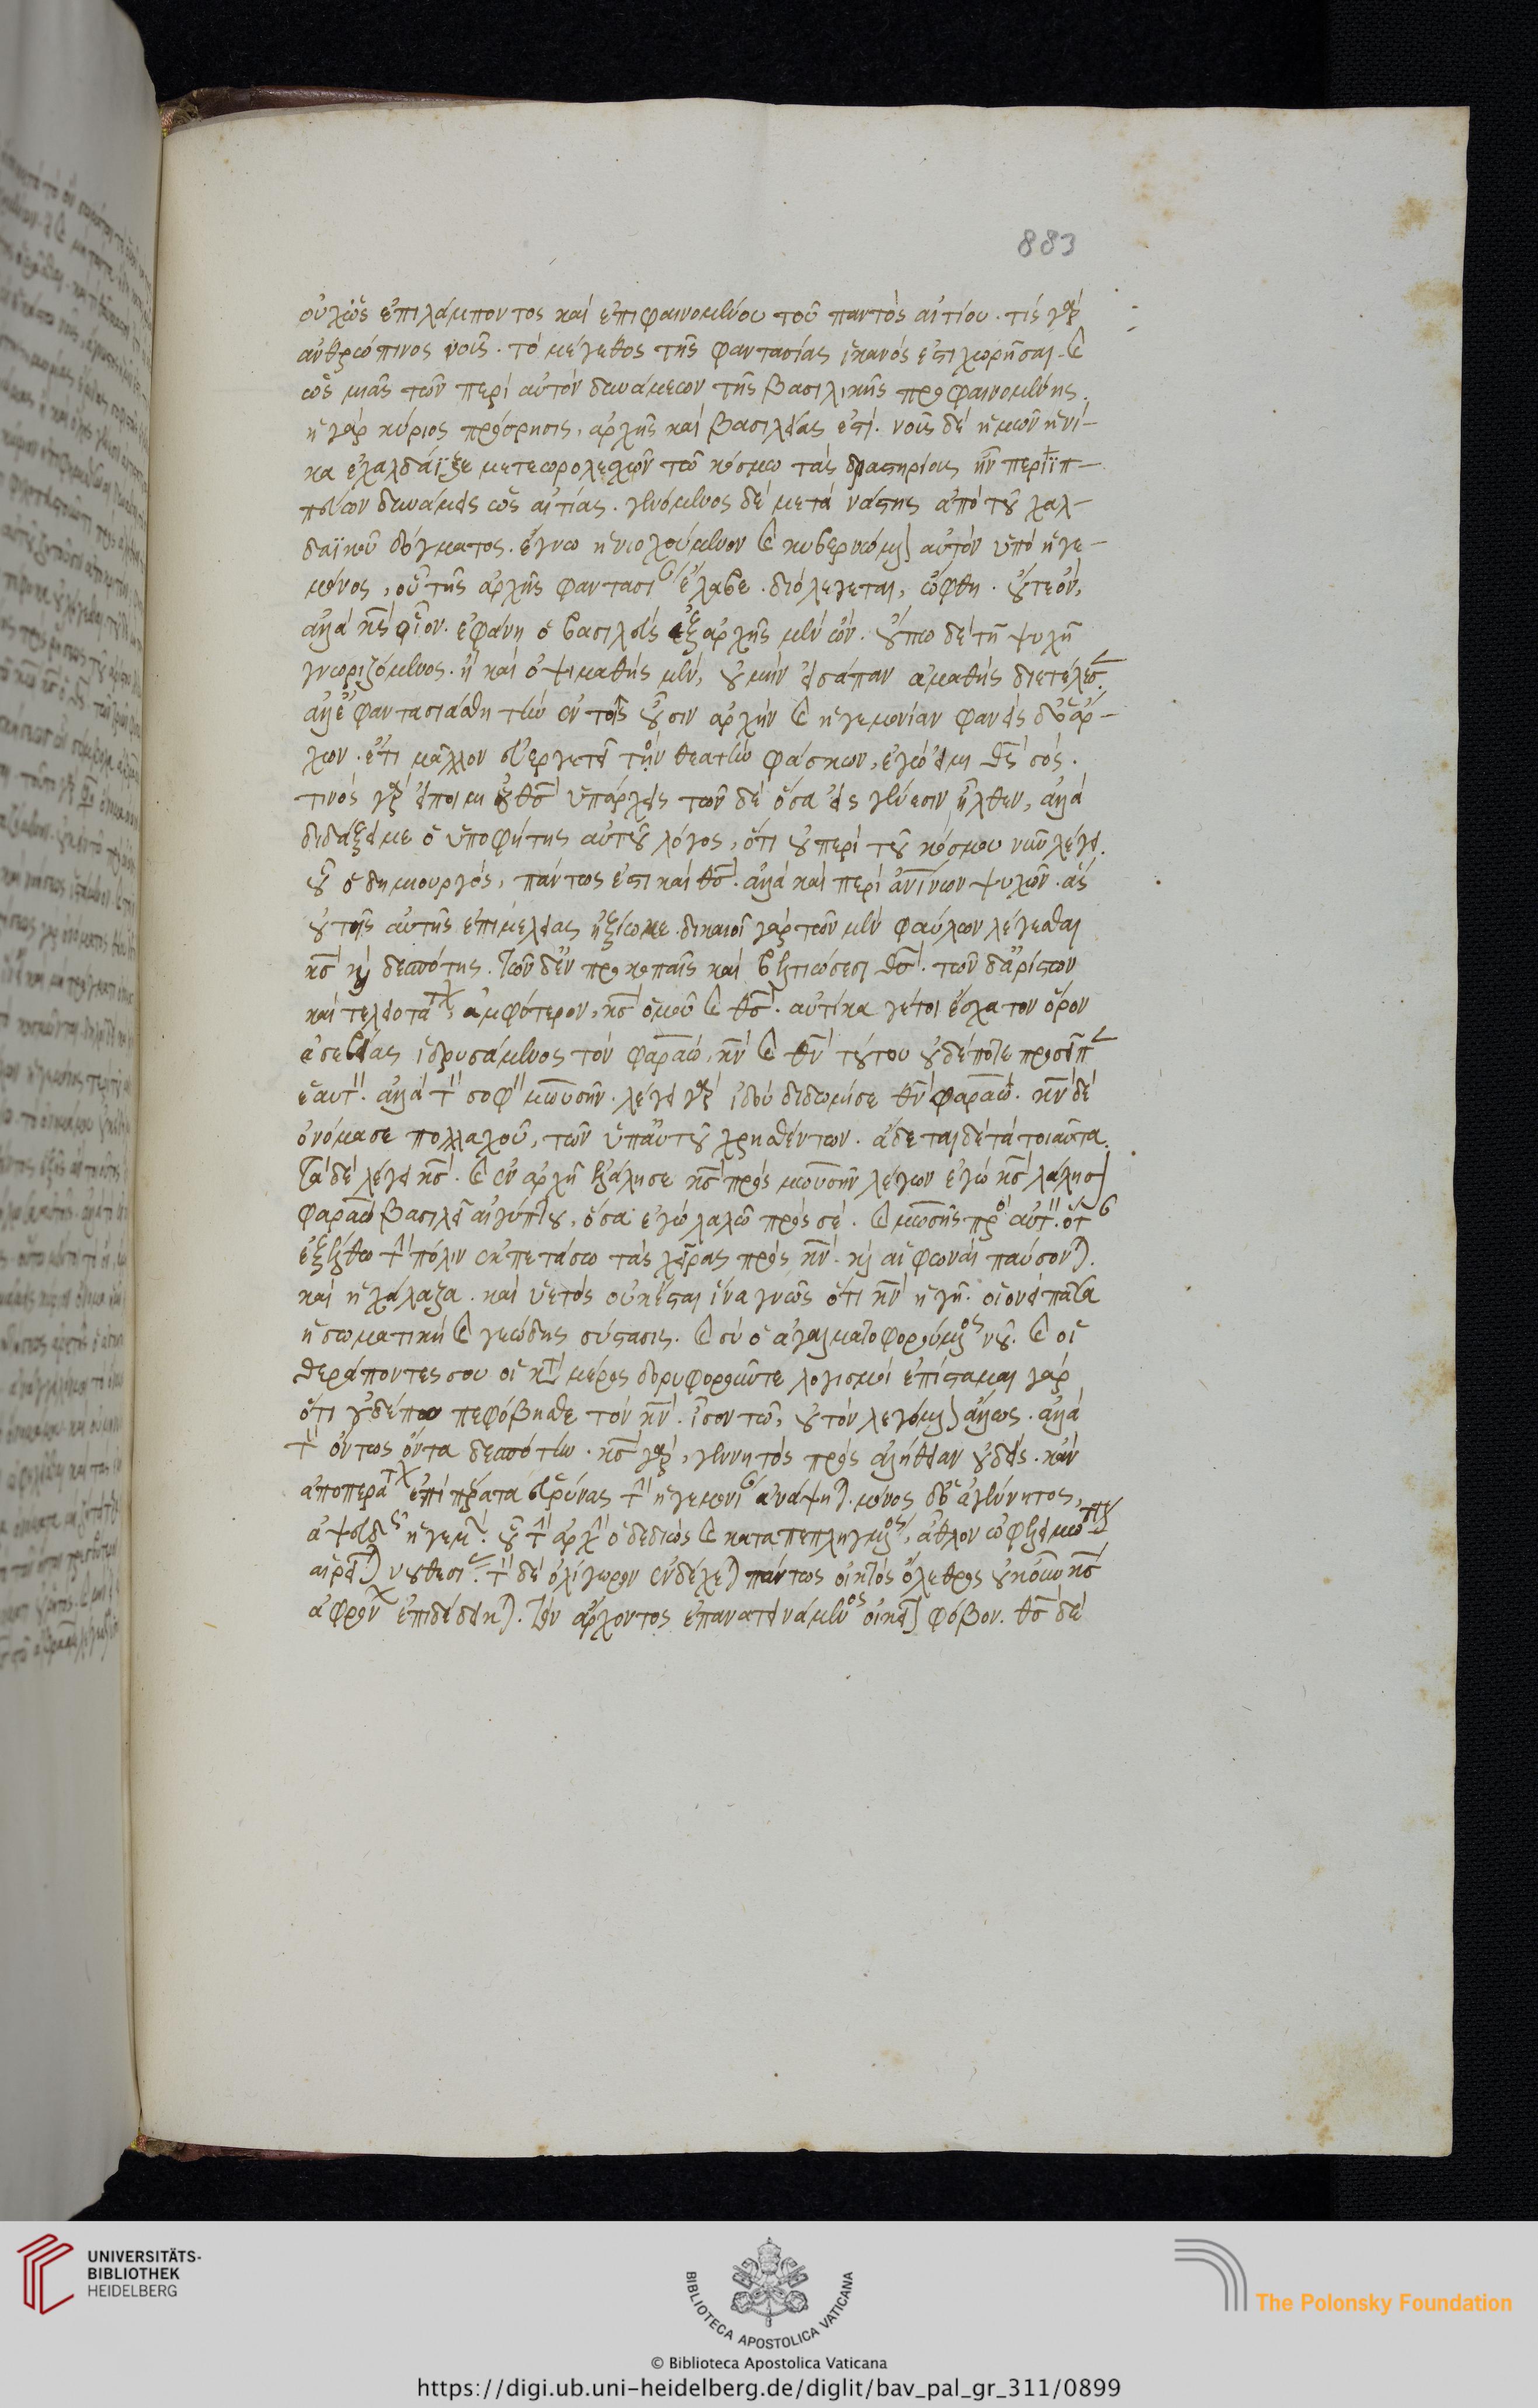 883
οὐχ ὡς ἐπιλάμποντος καὶ ἐπιφαινομένου τοῦ παντὸς αἰτίου. τίς γὰρ
ἀνθρώπινος νοῦς. τὸ μέγεθος τῆς φαντασίας ἱκανός ἐστι χωρῆσαι. καὶ
ὡς μιᾶς τῶν περὶ αὐτὸν δυνάμεων τῆς βασιλικῆς προφαινομένης.
ἡ γὰρ κύριος πρόσρησις, ἀρχῆς καὶ βασιλείας ἐστί. νοῦς δὲ ἡμῶν ἡνί-
κα ἐχαλδάϊξε μετεωρολεσχῶν τῷ κόσμω τὰς δραστηρίους
δυνάμεις ὡς αἰτίας. γενόμενος δὲ μετανάστης ἀπὸ τοῦ χαλ-
δαϊκοῦ δόγματος. ἔγνω ἡνιοχούμενον καὶ κυβερνώμενον αὐτὸν ὑπὸ ἡγε-
μόνος, οὗ τῆς ἀρχῆς φαντασίαν ἔλαβε. διὸ λέγεται, ὤφθη. οὐ τὸ ὄν,
ἀλλὰ κς. ἐφάνη ὁ βασιλεὺς ἐξ ἀρχῆς μὲν ὤν. οὔπω δὲ τῇ ψυχῇ
γνωριζόμενος. ἣ καὶ ὀψιμαθὴς μὲν, οὐ μὴν εἰσάπαν ἀμαθὴς διετέλεσεν.
ἀλλ' ἐφαντασιώθη τὴν ἐν τοῖς οὖσιν ἀρχὴν καὶ ἡγεμονίαν φανεὶς δὲ ὁ ἄρ-
χων. ἔτι μᾶλλον εὐεργετεῖ τὸν θεατὴν φάσκων, ἐγώ εἰμι θς σός.
τινὸς γὰρ εἴποιμι οὐ θς ὑπάρχεις τῶν δὲ ὅσα εἰς γένεσιν ἦλθεν, ἀλλὰ
διδάξει με ὁ ὑποφήτης αὐτοῦ λόγος, ὅτι οὐ περὶ τοῦ κόσμου νῦν λέγει.
οὗ ὁ δημιουργός, πάντως ἐστὶ καὶ θς. ἀλλὰ καὶ περὶ ἀνίνων ψυχῶν. ἃς
οὐ τῆς αὐτῆς ἐπιμελείας ἠξίωκε. δικαιοῖ γὰρ τῶν μὲν φαύλων λέγεσθαι
κς καὶ δεσπότης. τῶν δ' ἐν προκοπαῖς καὶ βελτιώσεσι θς. τῶν δ' ἀρίστων
καὶ τελειοτάτων, ἀμφότερον, κς ὁμοῦ καὶ θς. αὐτίκα γέτοι ἔσχατον ὅρον
ἀσεβείας ἱδρυσάμενος τὸν φαραώ, κν καὶ θν τούτου οὐδέποτε προσεῖπεν
ἑαυτόν. ἀλλὰ τὸν σοφὸν μωυσῆν. λέγει γὰρ ἰδοὺ δίδωμί σε θν φαραώ. κν δὲ
ὀνόμασε πολλαχοῦ, τῶν ὑπ' αὐτοῦ χρησθέντων. ᾄδεται δὲ τὰ τοιαῦτα.
τάδε λέγει κς. καὶ ἐν ἀρχῇ ἐλάλησε κς πρὸς μωυσῆν λέγων ἐγὼ κς λάλησον
φαραὼ βασιλεῖ αἰγύπτου, ὅσα ἐγὼ λαλῶ πρὸς σέ. καὶ μωσῆς πρὸς αὐτόν. ὅταν
ἐξέλθω τὴν πόλιν ἐκπετάσω τὰς χεῖρας πρὸς κν. καὶ αἱ φωναὶ παύσονται.
καὶ ἡ χάλαζα. καὶ ὑετὸς οὐκ ἔσται ἵνα γνῷς ὅτι κν ἡ γῆ. οἱονεὶ πᾶσα
ἡ σωματικὴ καὶ γεώδης σύστασις. καὶ σὺ ὁ ἀγαλματοφορούμενος νοῦς. καὶ οἱ
θεράποντές σου οἱ κατὰ μέρος δορυφοροῦντες λογισμοὶ ἐπίσταμαι γὰρ
ὅτι οὐδέπω πεφόβησθε τὸν κν. ἴσον τῷ, οὐ τὸν λεγόμενον ἄλλως. ἀλλὰ
τὸν ὄντως ὄντα δεσπότην. κς γὰρ, γεννητὸς πρὸς ἀλήθειαν οὐδείς. κἂν
ἀπὸ περάτων ἐπὶ πέρατα εὐρύνας τὴν ἡγεμονίαν ἀνάψηται. μόνος δὲ ὁ ἀγέννητος,
ἀψευδῶς ἡγεμών. οὗ τὴν ἀρχὴν ὁ δεδιὼς καὶ καταπεπληγμένος, ἆθλον ὠφελιμώτατον
αἱρεῖται νουθεσίας. τὸν δὲ ὀλίγωρον ἐνδέχεται πάντως οἰκτὸς ὄλεθρος οὐκοῦν κς
ἀφρόνων ἐπιδέδεικται. τὸν ἄρχοντος ἐπανατεινάμενος οἰκεῖον φόβον. θς δὲ
UNIVERSITÄTS-
BIBLIOTHEK
HEIDELBERG
BIBLIOTECA APOSTOLICA VATICANA
The Polonsky Foundation
© Biblioteca Apostolica Vaticana
https://digi.ub.uni-heidelberg.de/diglit/bav_pal_gr_311/0899